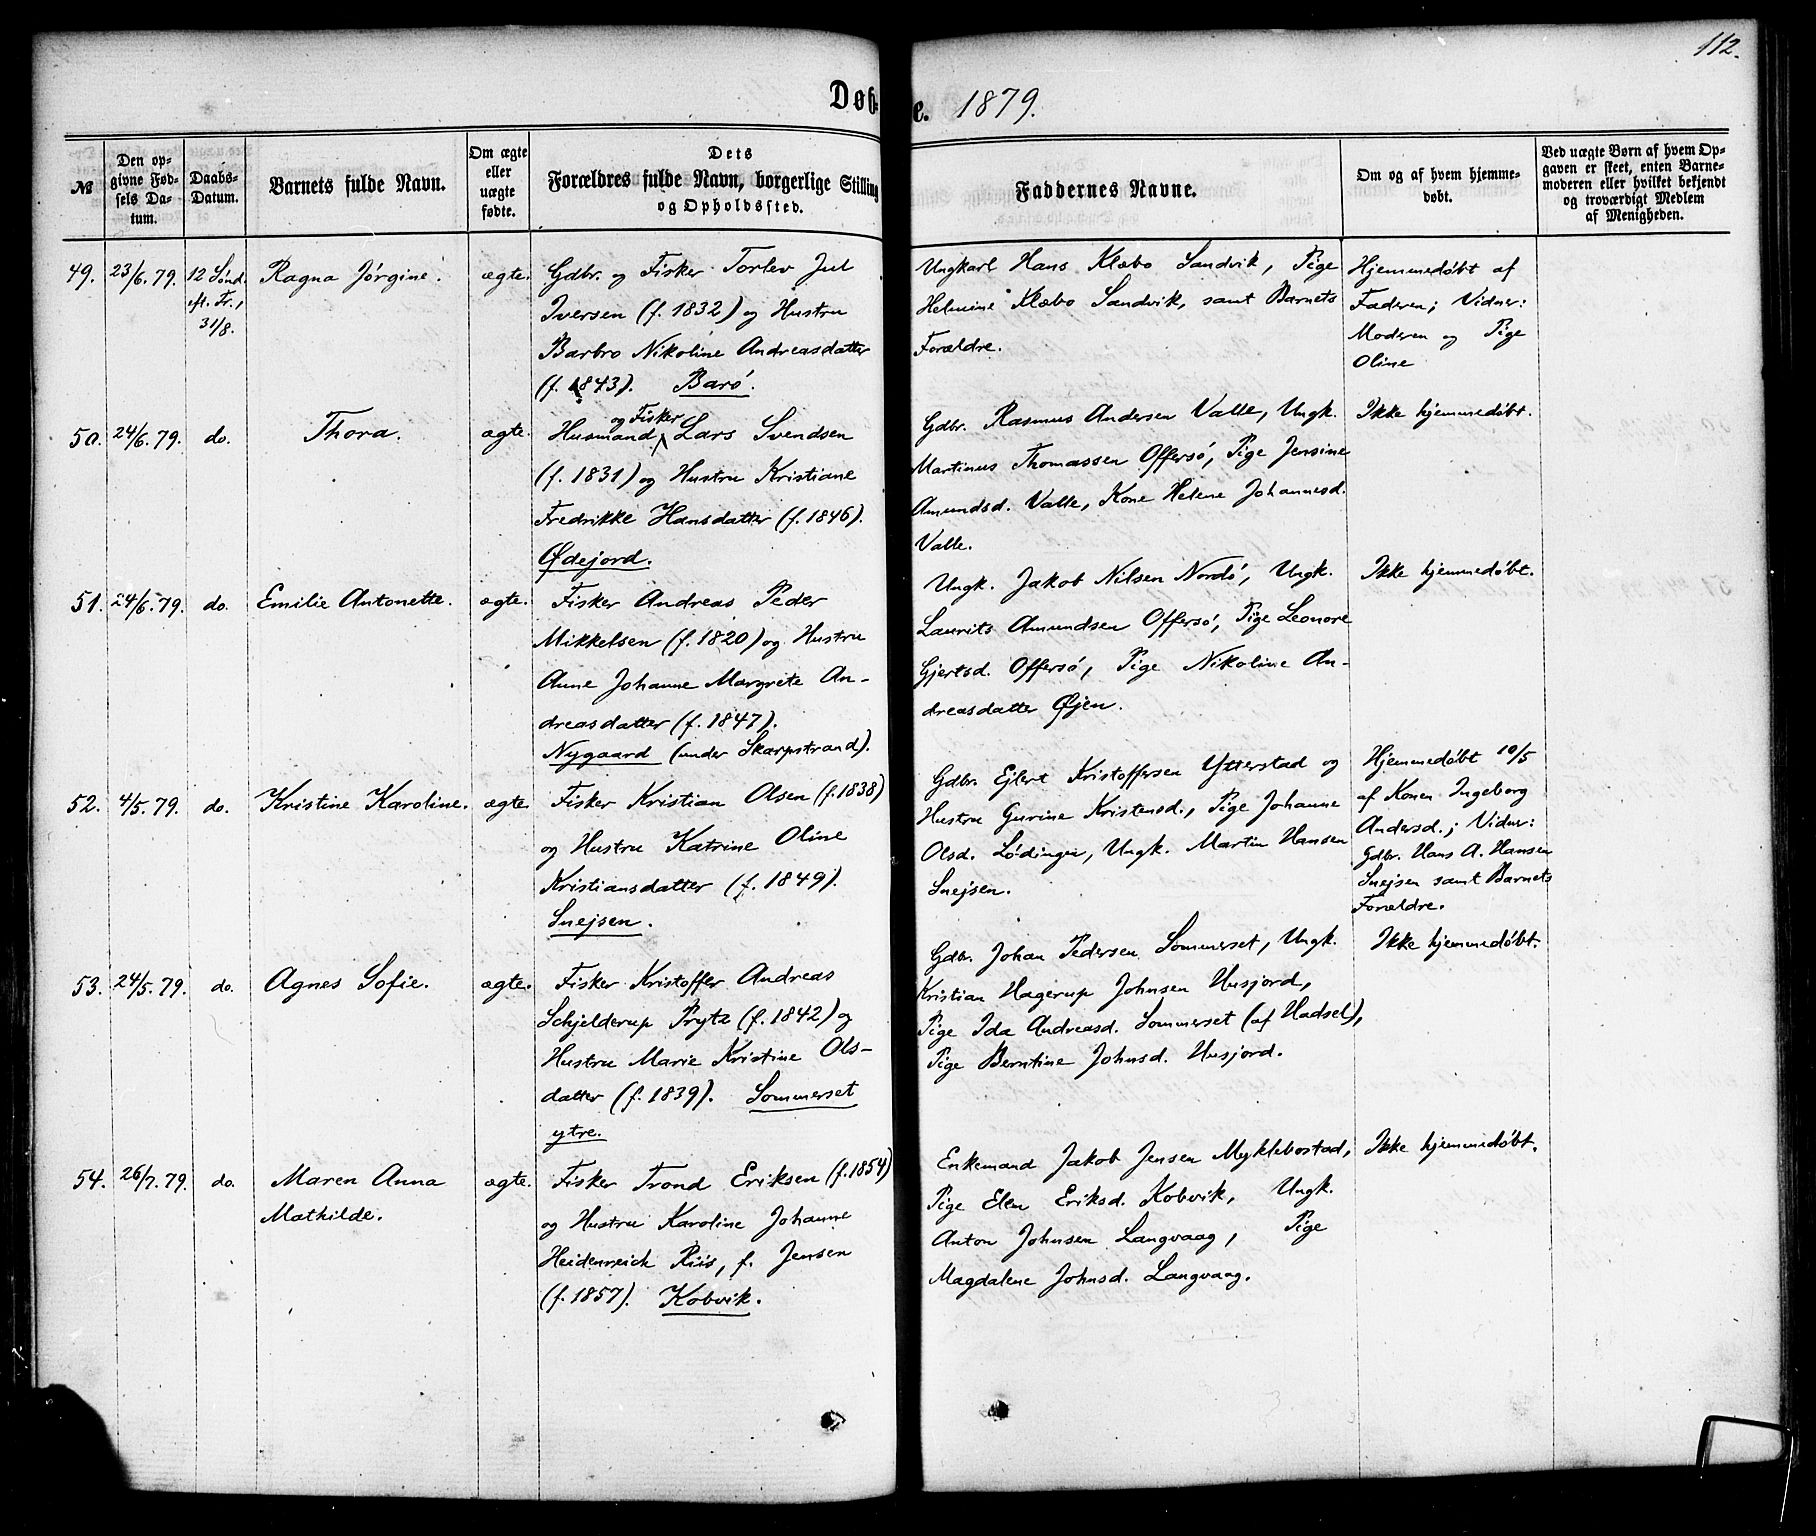 112.
Døbte. 1879.
№
Den opgivne Fødsels Datum.
Daabs-Datum.
Barnets fulde Navn.
Om ægte eller uægte fødte.
Dets Forældres fulde Navn, borgerlige Stilling og Opholdssted.
Faddernes Navne.
Om og af hvem hjemmedøbt.
Ved uægte Børn af hvem Opgaven er skeet, enten Barnemoderen eller hvilket bekjendt og troværdigt Medlem af Menigheden.
49. 23/6. 79. 12 Sønd. eft. Tr., 31/8. Ragna Jørgine. ægte.
Gdbr. og Fisker Torlev Jul
Iversen (f. 1832) og Hustru
Barbro Nikoline Andreasdatter
(f. 1843). Barø.
Ungkarl Hans Klæbo Sandvik, Pige
Helmine Klæbo Sandvik, samt Barnets
Forældre.
Hjemmedøbt af
Faderen; Vidner:
Moderen og Pige
Oline
50. 24/6. 79. do. Thora. ægte.
Husmand og Fisker Lars Svendsen
(f. 1831) og Hustru Kristiane
Fredrikke Hansdatter (f. 1846).
Ødejord.
Gdbr. Rasmus Andersen Valle, Ungk.
Martinus Thomassen Offersø, Pige Jensine
Amundsd. Valle, Kone Helene Johannesd.
Valle.
Ikke hjemmedøbt.
51. 24/6. 79. do. Emilie Antonette. ægte.
Fisker Andreas Peder
Mikkelsen (f. 1820) og Hustru
Anne Johanne Margrete An-
dreasdatter (f. 1847).
Nygaard (under Skarpstrand).
Ungk. Jakob Nilsen Nordø, Ungk.
Laurits Amundsen Offersø, Pige Leonore
Gjertsd. Offersø, Pige Nikoline An-
dreasdatter Øjen.
Ikke hjemmedøbt.
52. 4/5. 79. do. Kristine Karoline. ægte.
Fisker Kristian Olsen (f. 1838)
og Hustru Katrine Oline
Kristiansdatter (f. 1849).
Snejsen.
Gdbr. Ejlert Kristoffersen Ytterstad og
Hustru Gurine Kristensd., Pige Johanne
Olsd. Lødingen, Ungk. Martin Hansen
Snejsen.
Hjemmedøbt 10/5
af Konen Ingeborg
Andersd.; Vidner:
Gdbr. Hans A. Hansen
Snejsen samt Barnets
Forældre.
53. 24/5. 79. do. Agnes Sofie. ægte.
Fisker Kristoffer Andreas
Schjelderup Prytz (f. 1842) og
Hustru Marie Kristine Ols-
datter (f. 1839). Sommerset
ytre.
Gdbr. Johan Pedersen Sommerset, Ungk.
Kristian Hagerup Johnsen Husjord,
Pige Ida Andreasd. Sommerset (af Hadsel),
Pige Berntine Johnsd. Husjord.
Ikke hjemmedøbt.
54. 26/7. 79. do. Maren Anna
Mathilde. ægte.
Fisker Trond Eriksen (f. 1854)
og Hustru Karoline Johanne
Heidenreich Riis, f. Jensen
(f. 1857). Kobvik.
Enkemand Jakob Jensen Myklebostad,
Pige Elen Eriksd. Kobvik, Ungk.
Anton Johnsen Langvaag, Pige
Magdalene Johnsd. Langvaag.
Ikke hjemmedøbt.